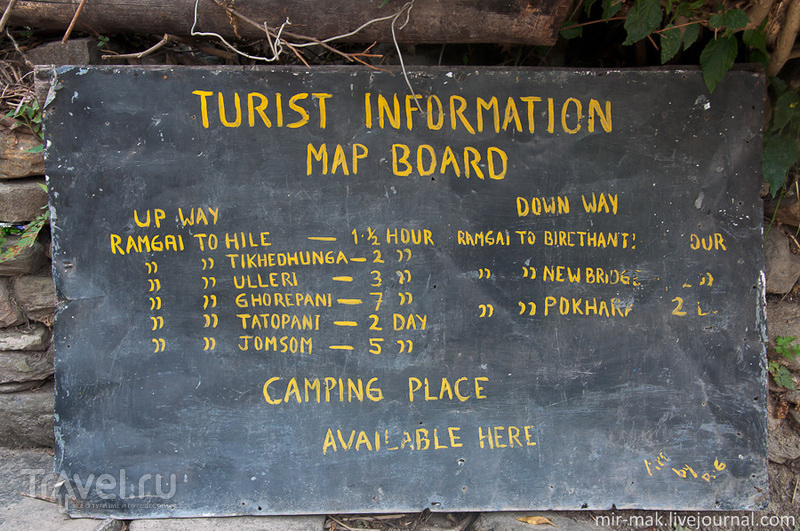 TURIST INFORMATION
MAP BOARD
UP WAY
RAMGAI TO HILE — 1·½ HOUR
" " TIKHEDHUNGA — 2 "
" " ULLERI — 3 "
" " GHOREPANI — 7 "
" " TATOPANI — 2 DAY
" " JOMSOM — 5 "
DOWN WAY
RAMGAI TO BIRETHANTI
" " NEW BRIDGE "
" " POKHARA 2
CAMPING PLACE
AVAILABLE HERE
by
Travel.ru
mir-mak.livejournal.com